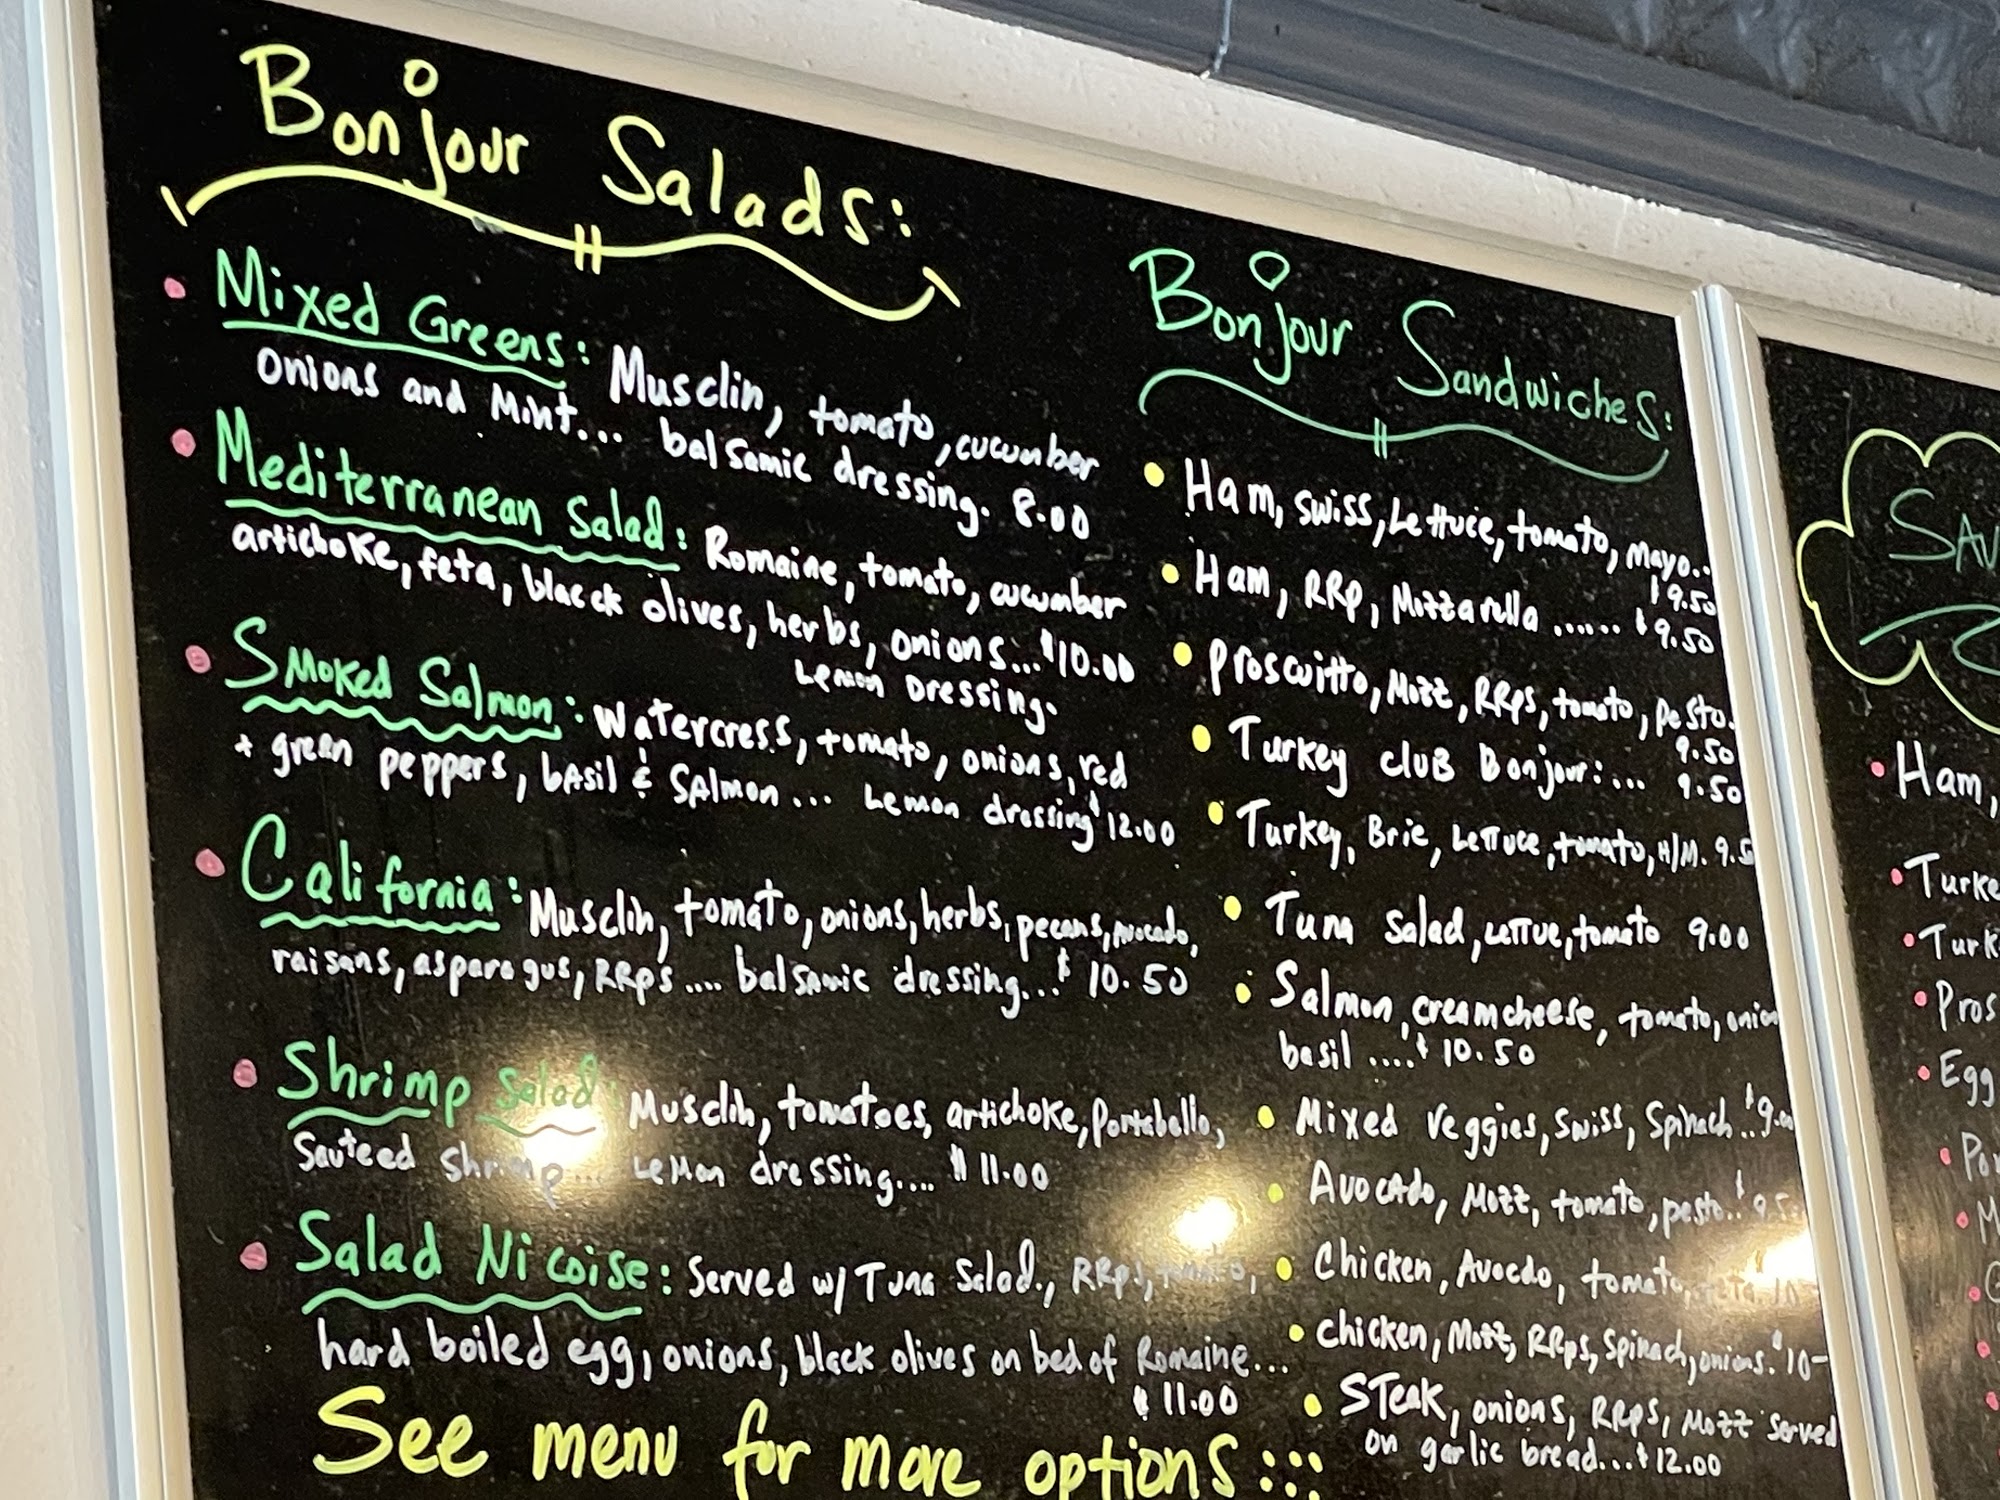 Bonjour Salads:
Mixed Greens: Musclin, tomato, cucumber
onions and Mint... balsamic dressing. 8.00
Mediterranean Salad: Romaine, tomato, cucumber
artichoke, feta, blacck olives, herbs, onions...$10.00
Lemon Dressing.
Smoked Salmon: Watercress, tomato, onions, red
+ green peppers, basil & Salmon... Lemon dressing $12.00
California: Musclin, tomato, onions, herbs, pecans, avocado,
raisans, asparagus, RRps.... balsamic dressing...$10.50
Shrimp Salad: Musclin, tomatoes, artichoke, Portabello,
Sauteed Shrimp... Lemon dressing.... $11.00
Salad Nicoise: Served w/ Tuna Salad., RRps, tomato,
hard boiled egg, onions, black olives on bed of Romaine...
$11.00
See menu for more options:::
Bonjour Sandwiches:
Ham, swiss, Lettuce, tomato, mayo..
$9.50
Ham, RRp, Mozzarella ...... $9.50
Proscuitto, Mozz, RRps, tomato, pesto.
9.50
Turkey club Bonjour:... 9.50
Turkey, Brie, Lettuce, tomato, H/M. 9.5
Tuna Salad, Lettue, tomato 9.00
Salmon, creamcheese, tomato, onion
basil ....$10.50
Mixed Veggies, Swiss, Spinach..$9.00
Avocado, Mozz, tomato, pesto..$9.5
Chicken, Avocdo, tomato,
chicken, Mozz, RRps, Spinach, onions.$10-
Steak, onions, RRps, Mozz served
on garlic bread...$12.00
Sav
Ham,
Turke
Turk
Pros
Egg
Po
M